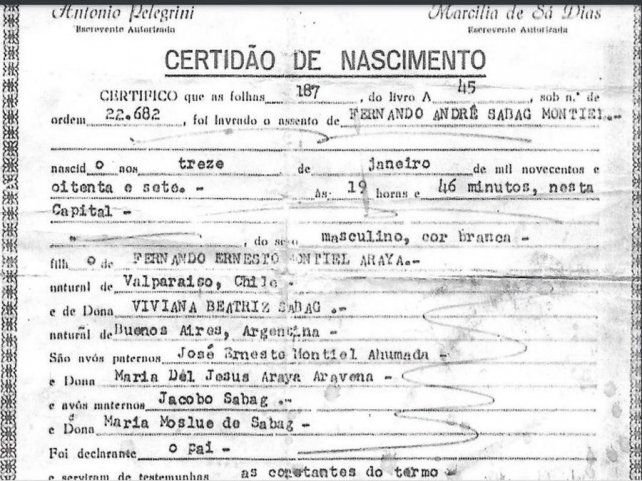 Antonio Pelegrini Marcilia de Sá Dias
Escrevente Autorizada Escrevente Autorizada
CERTIDÃO DE NASCIMENTO
CERTIFICO que as folhas 187 , do livro A 45 , sob n.º de
ordem 22.682 , foi lavrado o assento de FERNANDO ANDRÉ SABAG MONTIEL.-
nascid o aos treze de janeiro de mil novecentos e
oitenta e sete. - às 19 horas e 46 minutos, nesta
Capital -
, do sexo masculino, cor branca -
filh o de FERNANDO ERNESTO MONTIEL ARAYA.-
natural de Valparaiso, Chile -
e de Dona VIVIANA BEATRIZ SABAG .-
natural de Buenos Aires, Argentina -
São avós paternos José Ernesto Montiel Ahumada -
e Dona Maria Del Jesus Araya Aravena -
e avós maternos Jacobo Sabag .-
e Dona Maria Moslue de Sabag -
Foi declarante o pai -
e serviram de testemunhas as constantes do termo -